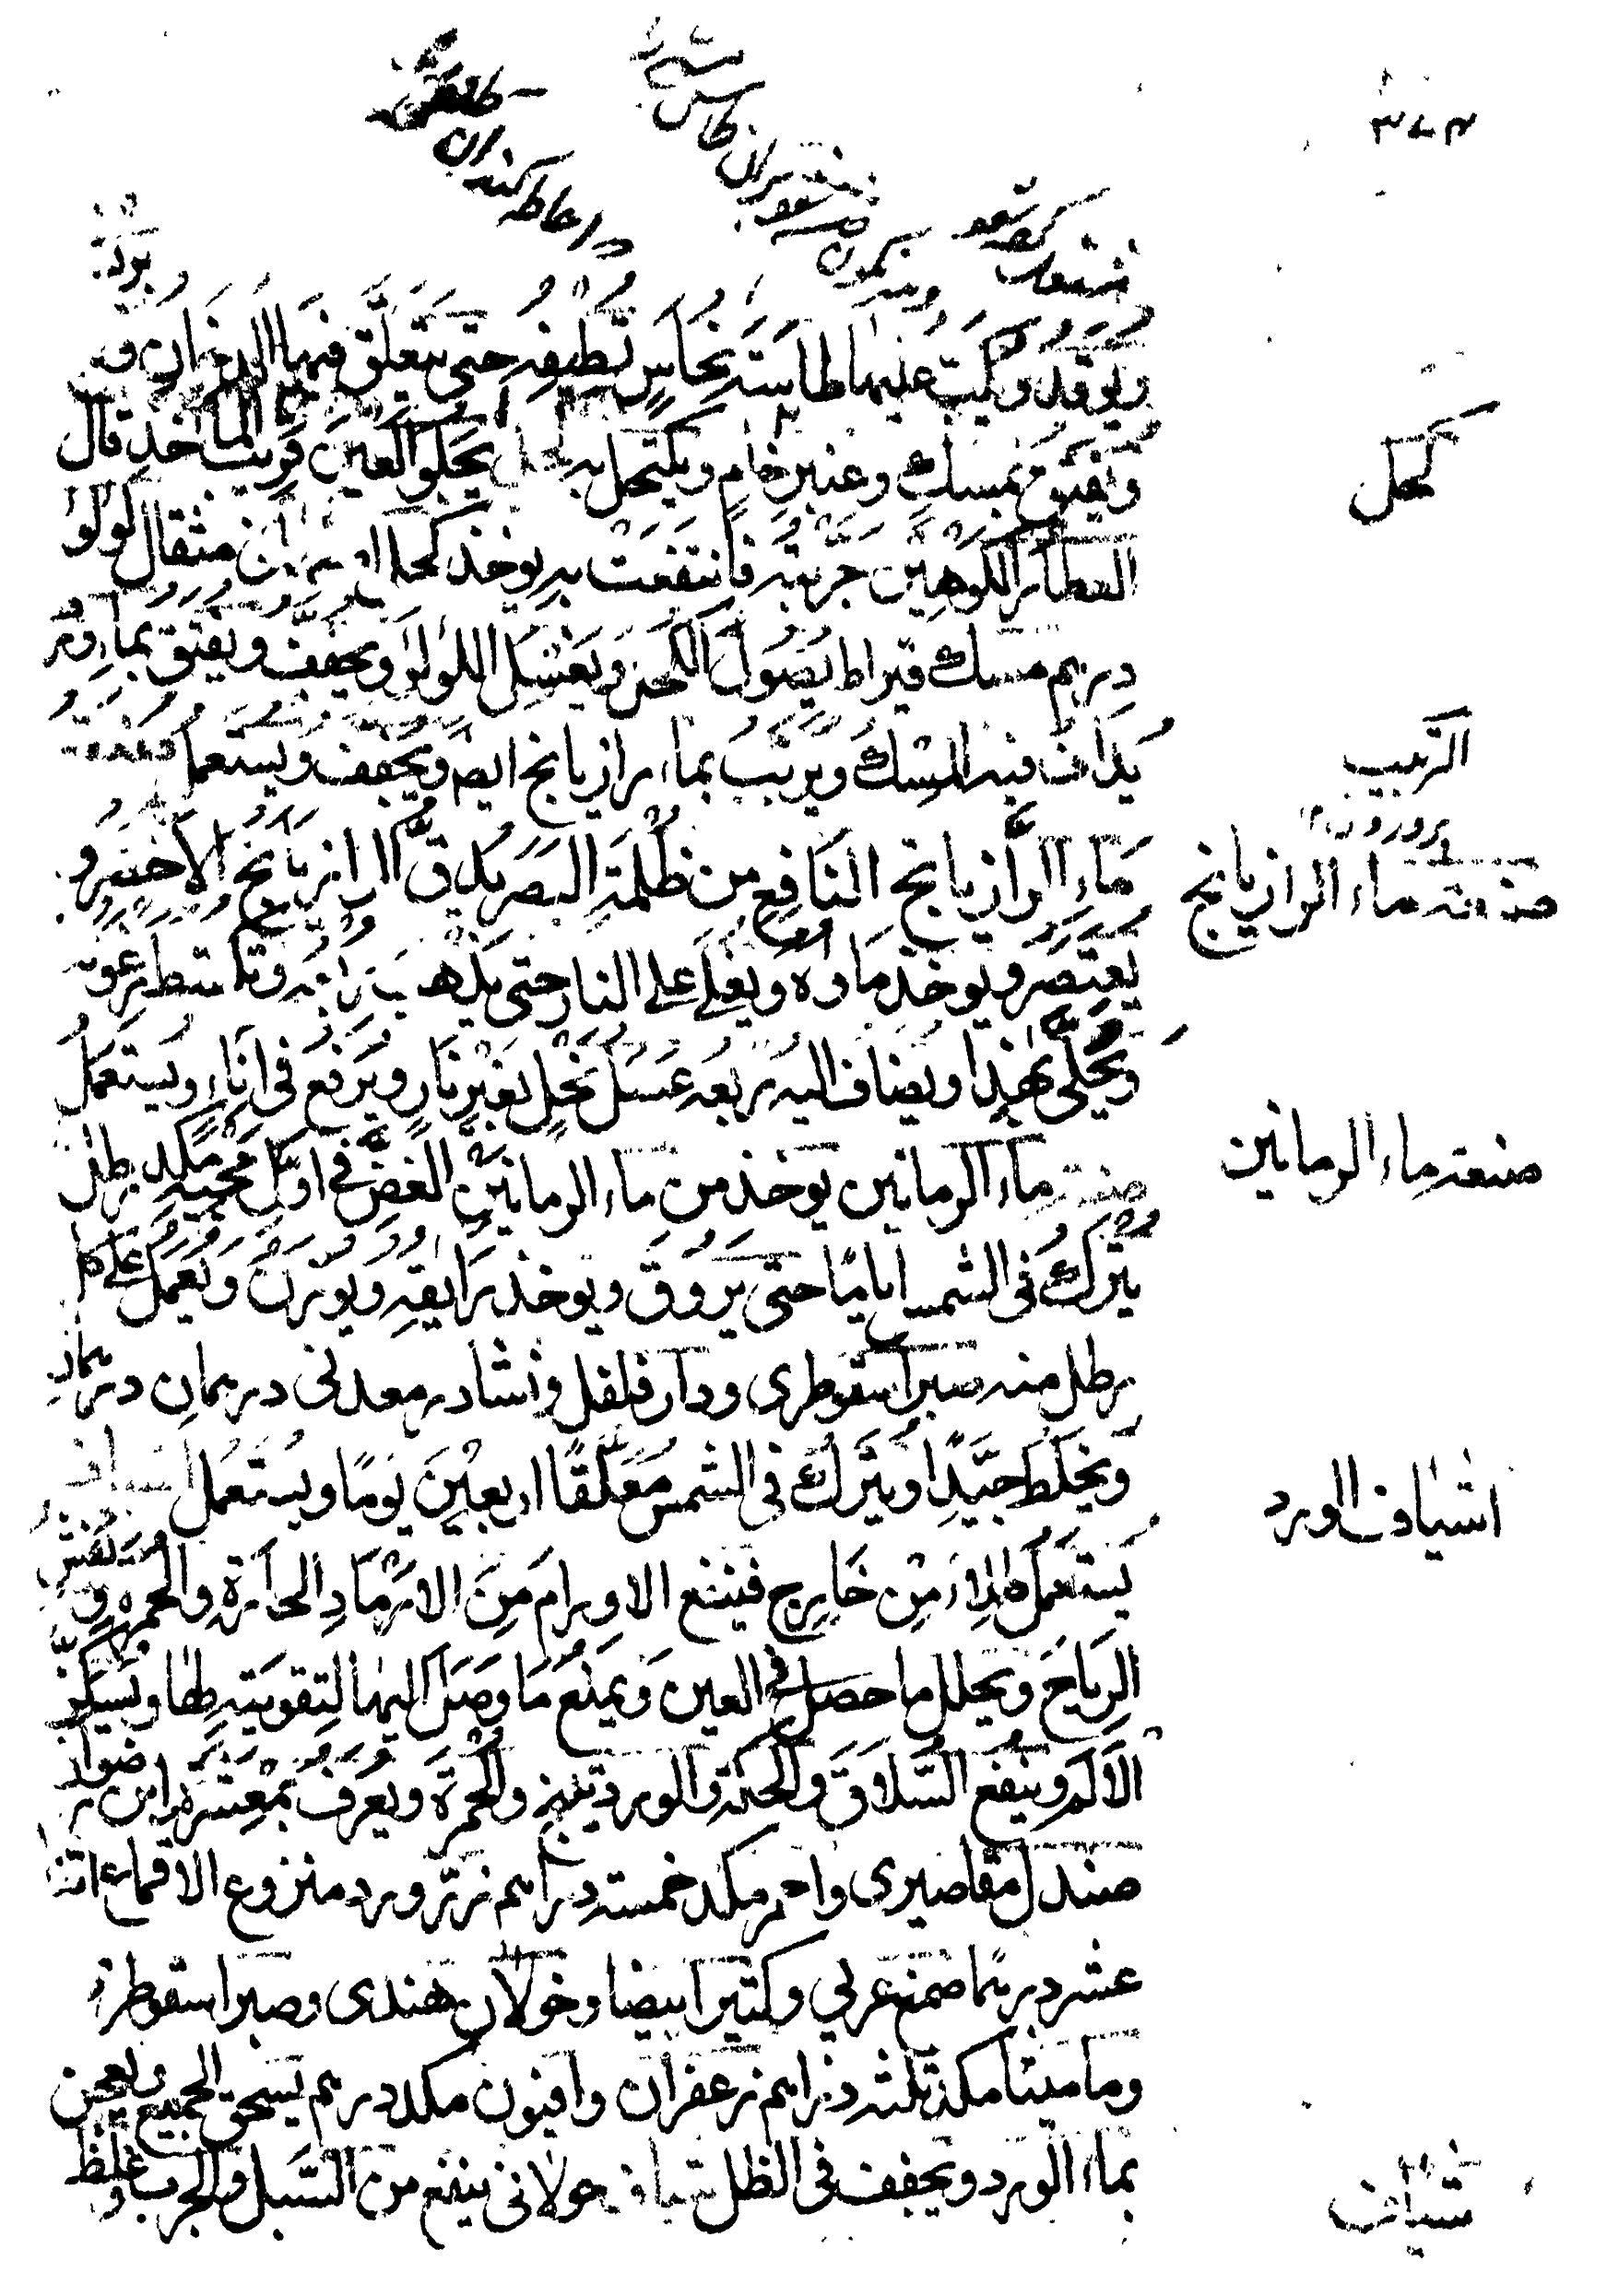 ٣٧٤
ويوقد ويكب عليها طاسة نحاس نظيفة حتى يتعلق فيها الدخان
ويفتق بمسك وعنبر خام ويكتحل به كحل يجلو العين قريب الماخذ قال
كحل
العطار الكوهين جربته فانتفعت به يوخذ كحل مثقال لولوا
درهم مسك قيراط يصول الكحل ويغسل اللولوا ويجفف ويفتق بماء
يداف فيه المسك ويربب بماء رازيانج ايضا ويجفف ويستعمل
التربيب
ماء الرازيانج النافع من ظلمة البصر يدق الرازيانج الاخضر و
صنعة ماء الرازيانج
يعتصر ويوخذ ماوه ويغلى على النار حتى يذهب رغوته
ويحلى بهذا ويضاف اليه ربعه عسل نحل بغير نار ويرفع في اناء ويستعمل
صنعة ماء الرمانين يوخذ من ماء الرمانين الغض في اول مكد رطل
صنعة ماء الرمانين
يترك في الشمس اياما حتى يروق ويوخذ رايقه ويوزن ويعمل على كل
رطل منه صبر اسقوطرى ودار فلفل ونشادر معدنى درهمان درهمان
ويخلط جيدا ويترك في الشمس معلقا اربعين يوما ويستعمل اشياف
اشياف الورد
يستعمل طلاء من خارج فينفع الاورام من الارماد الحارة والحمرة ويفش
الرياح ويحلل ما حصل في العين ويمنع ما وصل اليها لتقويته لها ويسكن
الالم وينفع السلاق والحكة والوردينج والحمرة ويعرف بمعشرة ابن رضوان
صندل مقاصيرى واحمر مكد خمسة دراهم زر ورد منزوع الاقماع اثنا
عشر درهما صمغ عربي وكثيرا بيضا وخولان هندى وصبر اسقوطرى
وماميثا مكد ثلثه دراهم زعفران وافيون مكد درهم يسحق الجميع ويعجن
بماء الورد ويجفف في الظل شياف خولانى ينفع من السبل والجرب وغلظ
شياف